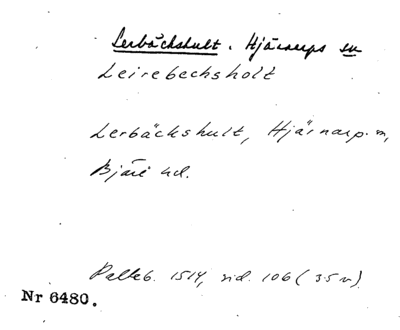 Lerbäckshult. Hjärnarps sn
Leirebechsholt
Lerbäckshult, Hjärnarp. sn,
Bjäre hd.
Palteb. 1514, sid. 106 (35 v)
Nr 6480.